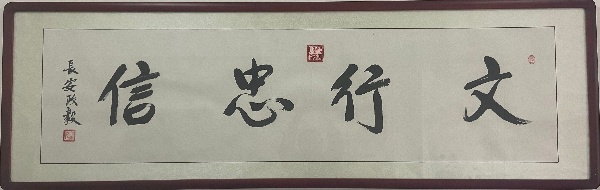 文行忠信
長安政毅